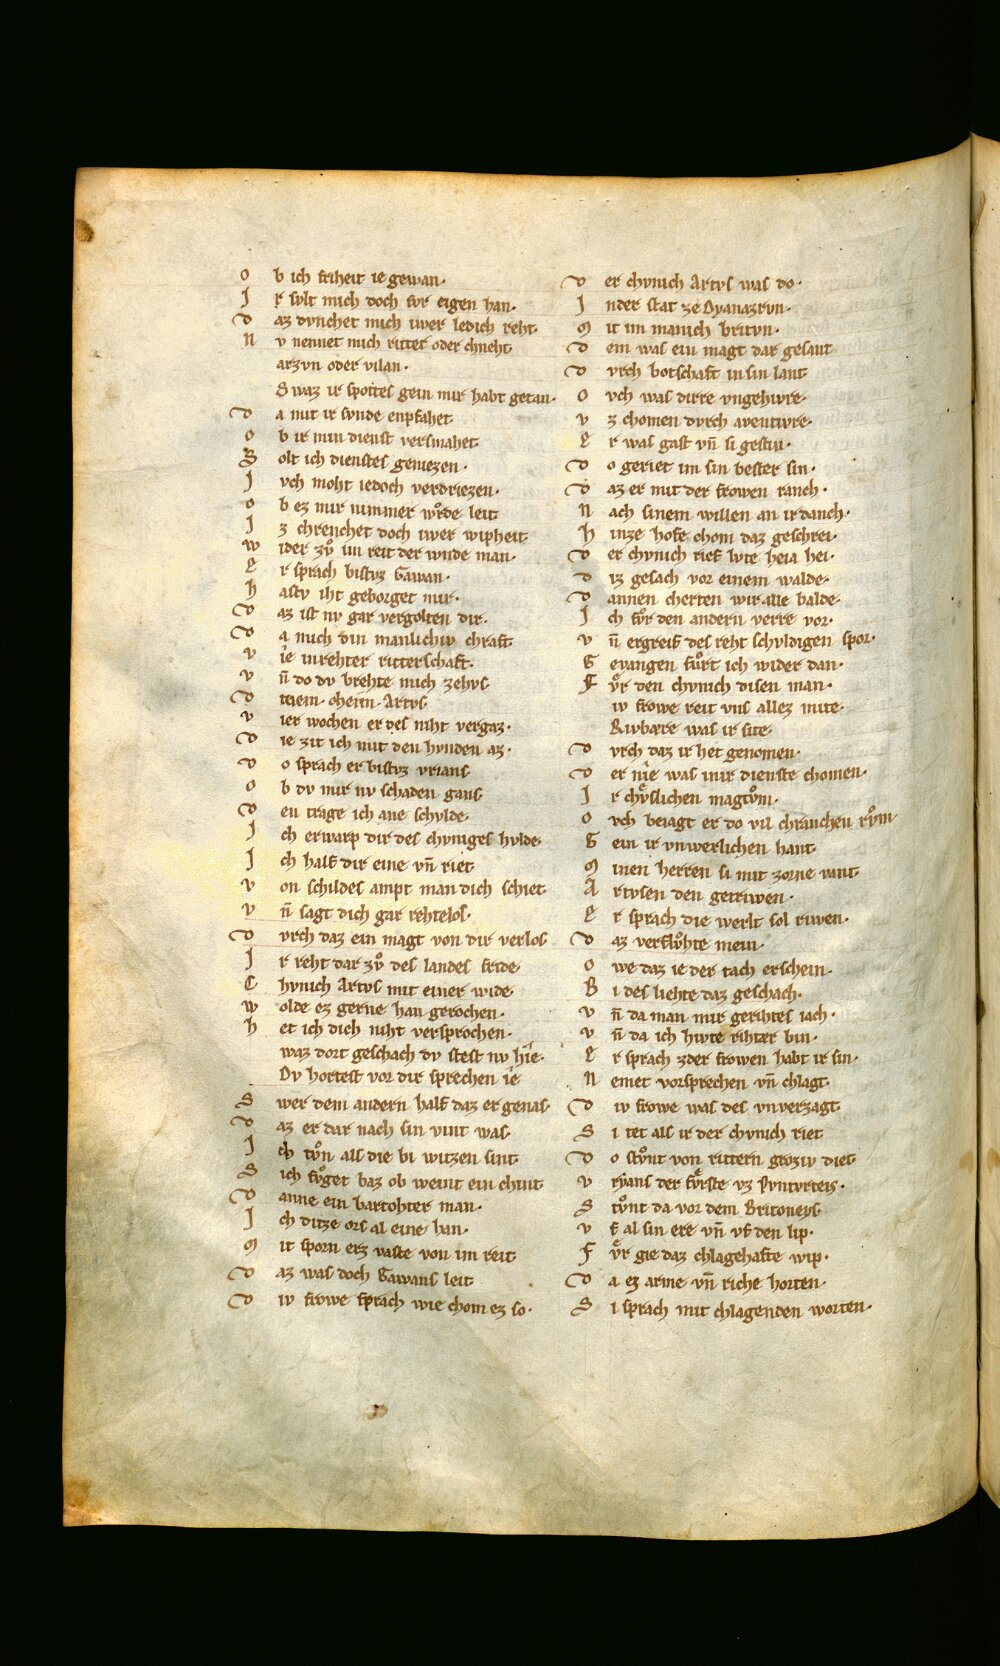 Ob ich friheit ie gewan·
Ir svlt mich doch for eigen han·
Daz dvnchet mich iwer ledich reht·
Nv nennet mich ritter oder chneht
arzvn oder vilan·
Swaz ir spottes gein mir habt getan·
Da mit ir svnde enpfahet
Ob ir min dienst versmahet
Solt ich dienstes geniezen·
Ivch moht iedoch verdriezen·
Ob ez mir nimmer wͦrde leit
Iz chrenchet doch iwer wipheit
wider zvͦ im reit der wnde man·
Er sprach bistvz Gawan·
hastv iht geborget mir·
Daz ist nv gar vergolten dir·
Da mich din manlichiv chraft
vie inrehter ritterschaft·
vn̄ do dv brehte mich zehvs
Deiem· oheim· Artvs
vier wochen er des niht vergaz·
Die zit ich mit den hvnden az·
Do sprach er bistvz vrians
Ob dv mir nv schaden gans
Den trage ich ane schvlde·
Ich erwarp dir des chvniges hvlde·
Ich half dir eine vn̄ riet
von schildes ampt man dich schiet
vn̄ sagt dich gar rehtelos·
Dvrch daz ein magt von dir verlos
Ir reht dar zvͦ des landes fride
Chvnich Artvs mit einer wide
wolde ez gerne han gerochen·
het ich dich niht versprochen·
waz dort geschach dv stest nv hie·
Dv hortest vor dir sprechen ie
Swer dem andern half daz er genas
Daz er dar nach sin vint was
Ich tvͦn als die bi witzen sint
Sich fvͦget baz ob weint ein chint
Danne ein bartohter man·
Ich ditze ors al eine han·
Mit sporn erz vaste von im reit
Daz was doch Gawans leit
Div frowe sprach wie chom ez so·
Der chvnich Artvs was do·
Inder stat ze Dyanazrvn·
Mit im manich britvn·
Dem was ein magt dar gesant
Dvrch botschaft in sin lant
Ovch was dirre vngehivre·
vz chomen dvrch aventivre·
Er was gast vn̄ si gestin·
Do geriet im sin bester sin·
Daz er mit der frowen ranch·
Nach sinem willen an ir danch·
hinze hofe chom daz geschrei·
Der chvnich rief lvte heia hei·
Diz gesach vor einem walde·
Dannen cherten wir alle balde·
Ich fvͦr den andern verre vor·
vn̄ ergreif des reht schvldigen spor·
Gevangen fvͦrt ich wider dan·
Fvͤr den chvnich disen man·
iv frowe reit vns allez mite·
Rivbære was ir site·
Dvrch daz ir het genomen·
Der nie was inir dienste chomen·
Ir chvͤslichen magtvͦm·
Ovch beiagt er do vil chranchen rvͦm
Gein ir vnwerlichen hant
Minen herren si mit zorne vant
Artvsen den getriwen·
Er sprach die werlt sol riwen·
Daz verflvͦhte mein·
Owe daz ie der tach erschein·
Bi des liehte daz geschach·
vn̄ da man mir gerihtes iach·
vn̄ da ich hivte rihter bin·
Er sprach zder frowen habt ir sin·
Nemet vorsprechen vn̄ chlagt
Div frowe was des vnverzagt
Si tet als ir der chvnich riet
Do stvͦnt von rittern groziv diet
vrians der fvͤrste vz Pvntvrteis·
Stvͦnt da vor dem Britoneys
vf al sin ere vn̄ vf den lip·
Fvͤr gie daz chlagehafte wip·
Da ez arme vn̄ riche horten·
Si sprach mit chlagenden worten·